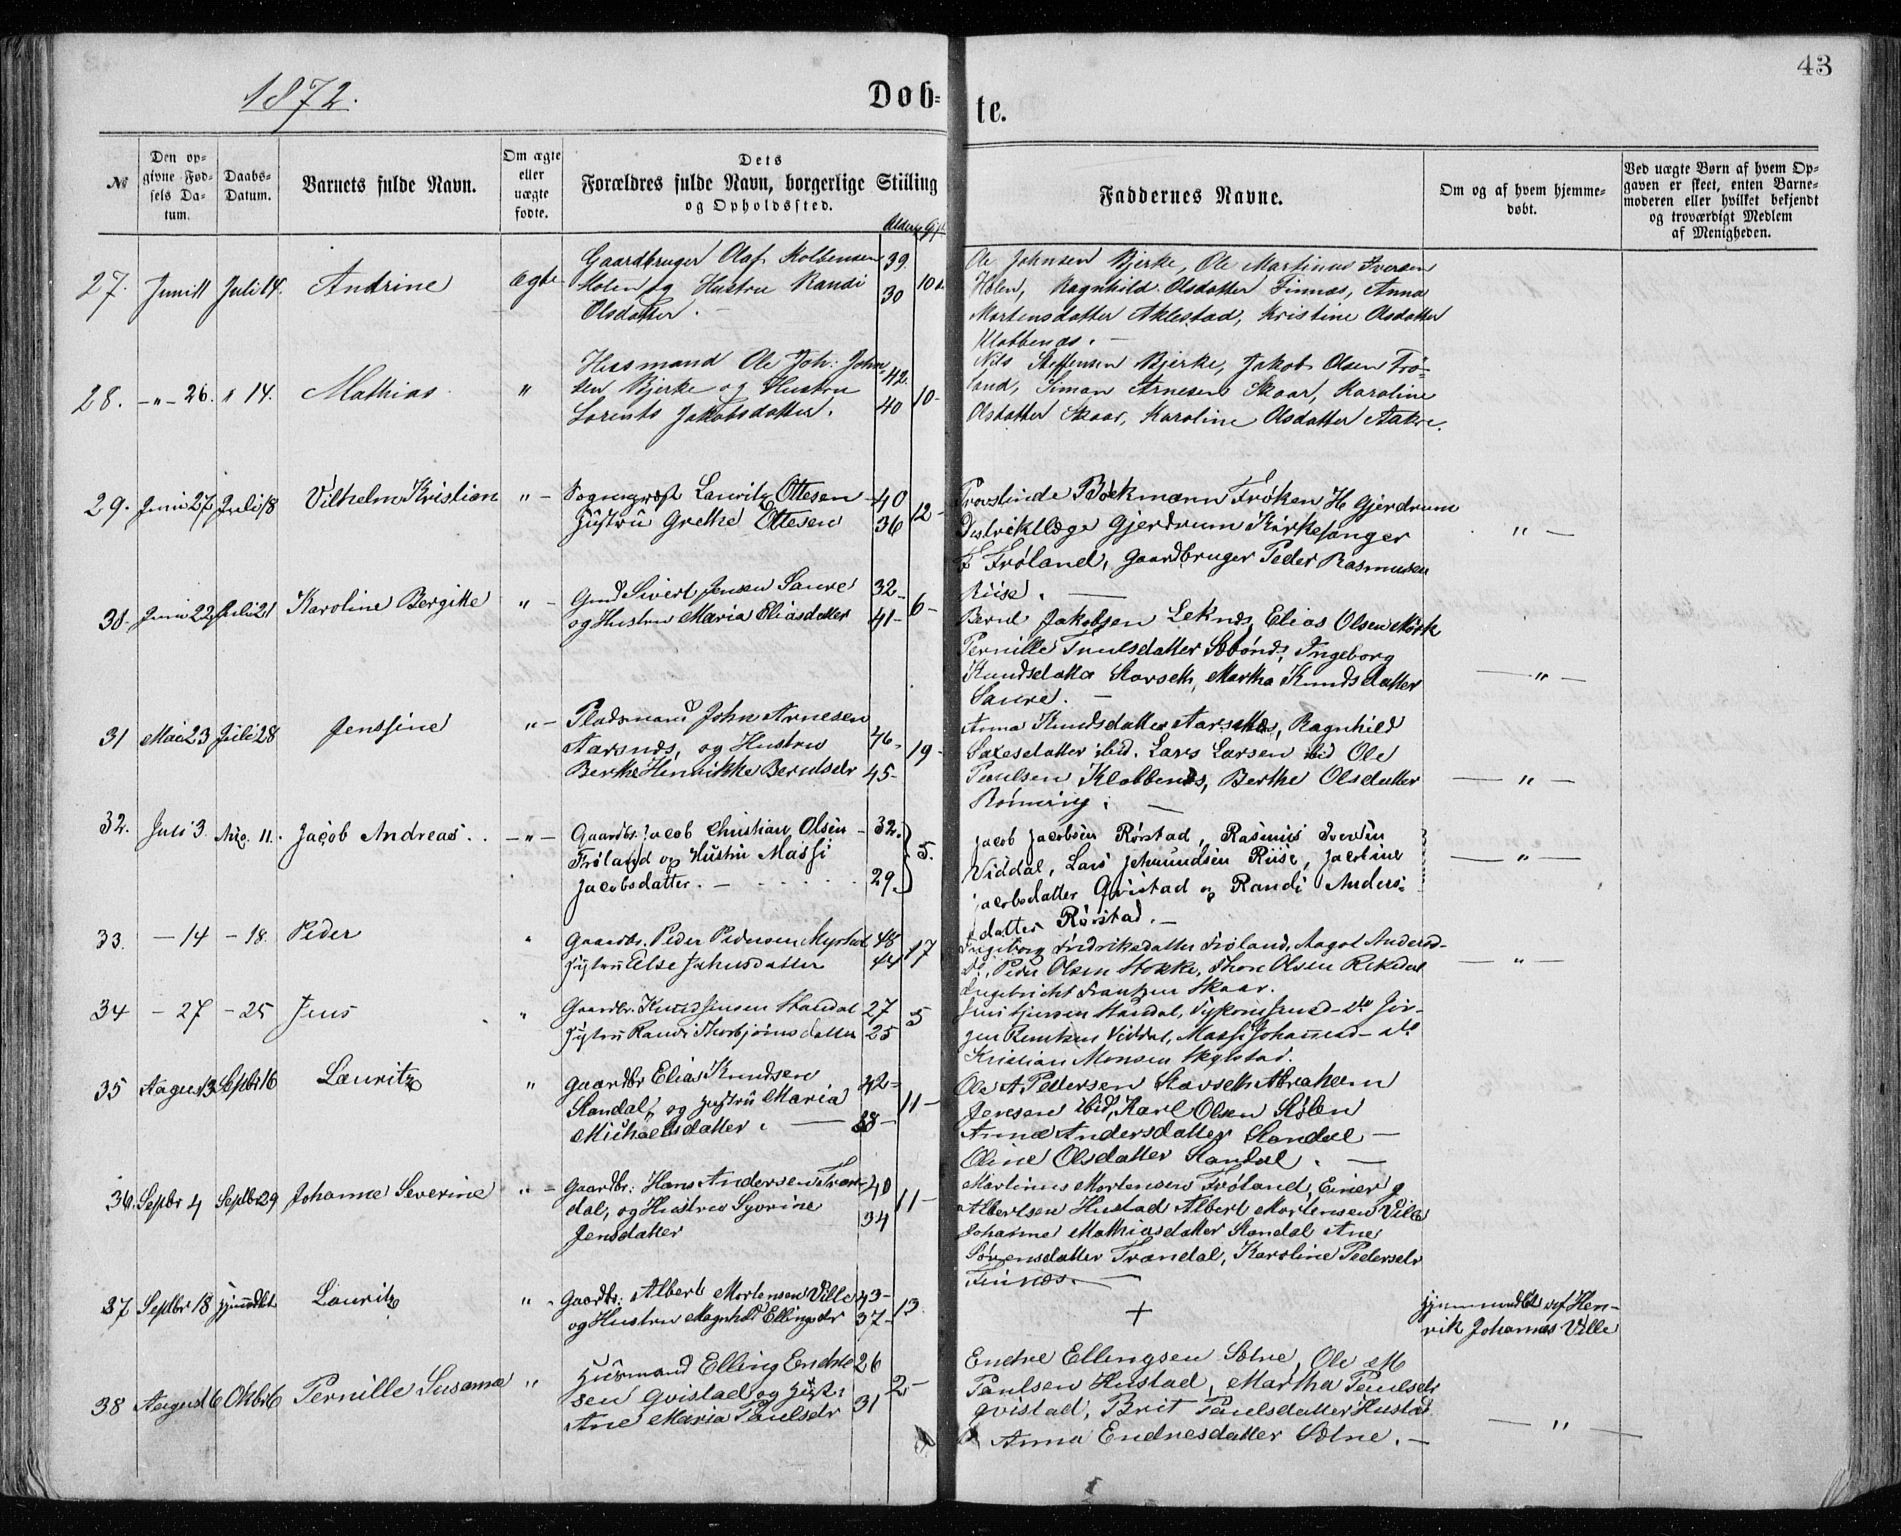 43
1872.
Døb-
te.
№
Den opgivne Fødsels Datum.
Daabs-Datum.
Barnets fulde Navn.
Om ægte eller uægte fødte.
Dets
Forældres fulde Navn, borgerlige Stilling
og Opholdssted.
Alder
Faddernes Navne.
Om og af hvem hjemmedøbt.
Ved uægte Børn af hvem Opgaven er skeet, enten Barnemoderen eller hvilket bekjendt og troværdigt Medlem af Menigheden.
27. Juni 11 Juli 14. Andrine ægte
Gaardbruger Olaf Kolbensen 39.
Holen og Hustru Randi 30 10
Olsdatter. –
Ole Johnsen Bjerke, Ole Martinus Iversen
Holen, Ragnhild Olsdatter Finnæs, Anna
Mortensdatter Aklestad, Kristine Olsdatter
Klobbenæs. –
28. – " – 26. " 14. Mathias "
Husmand Ole Joh. John- 42.
sen Bjerke og Hustru 10 –
Lorents Jakobsdatter. 40
Nils Steffensen Bjerke, Jakob Olsen Frø-
land, Simon Arnesen Skaar, Karoline
Olsdatter Skaar, Karoline Olsdatter Aakre.
29. Juni 27 Juli 18 Vilhelm Kristian " –
Sogneprest Lauritz Ottesen – 40
Hustru Grethe Ottesen 36 12 –
Provstinde Bøckmann Frøken H Gjerdrum
Distriktlæge Gjerdrum Kirkesanger
Frøland, Gaardbruger Peder Rasmusen
Riise. –
" –
30. Juni 22 Juli 21 Karoline Bergitte " –
Gmd Sivert Jensen Saure 32 –
og Hustru Maria Eliasdatter 41 – 6 –
Bernt Jakobsen Leknæs, Elias Olsen Mørk
Pernille Truulsdatter Sæbønæs, Ingeborg
Knudsdatter Storseth, Martha Knudsdatter
Saure. –
– " –
31 Mai 23 Juli 28 Jenssine " –
Pladsmand John Arnesen
Aarsnæs, og Hustru 46 – 19 –
Berthe Henrikke Berntsdr 45 –
Anna Knudsdatter Aarsnæs, Ragnhild
Saxesdatter ibid. Lars Larsen ibid Ole
Paulsen Klobbenæs, Berthe Olsdatter
– " –
32. Juli 3. Aug. 11. Jacob Andreas. – " –
Gaardbr. Jacob Christian Olsen – 32.
Frøland og Hustru Massi 5.
Jacobsdatter. – 29.
Jacob Jacobsen Rørstad, Rasmus Iversen
Viddal, Lars Johnundsen Riise, Jacobine
Jacobsdatter Qvistad og Randi Anders-
datter Rørstad. –
– " –
33. – 14 – 18. Peder "
Gaardbr. Peder Pedersen Myrstad 48
Hustru Else Jetmundsdatter 44 17
Ingeborg Fredriksdatter Frøland, Aagot Andersd-
Peder Olsen Stokke, Thore Olsen Rekedal
Ingebricht Frantzen Skaar.
– " –
34 – 27 – 25 Jens "
Gaardbr. Knud Jensen Standal 27
Hustru Randi Thorbjørnsdatter 25 5
Kristian Monsen Skylstad.
35 August 3 Septbr 16 Lauritz "
Gaardbr Elias Knudsen 42 –
Standal, og Hustru Maria 11 –
Michaelsdatter. – 38 –
Ole A. Pedersen Stavseth Abraham
Jensen ibid, Karl Olsen Holen
Anna Andersdatter Standal –
Oline Olsdatter Standal. –
36. Septbr 4 Septbr 29 Johanne Severine " –
Gaardbr: Hans Andersen Tran- 40
dal, og Hustru Syvrine 11 –
Jensdatter 34
Martinus Mortensen Frøland, Einer
Albertsen Hustad Albert Mortensen Ville
Johanne Mathiasdatter Standal Ane
Sørensdatter Trandal, Karoline Pedersdr
Finnæs. –
37 Septbr 18 hjemdbt Lauritz " –
Gaardbr: Albert Mortensen Ville 43 –
og Hustru Magnhild Ellingsdr 37 – 13.
+
Hjemmedbt af Hen-
rik Johannes Ville
38 August 6 Oktbr 6 Pernille Susanna "
Husmand Elling Endre- 26
sen Qvistad og Hust: 2 –
Ane Maria Paulsdr 31
Endre Ellingsen Sætre, Ole M
Paulsen Hustad, Martha Paulsdr
Qvistad, Brit Paulsdatter Hustad
Anna Endresdatter Sætre. –
– " –